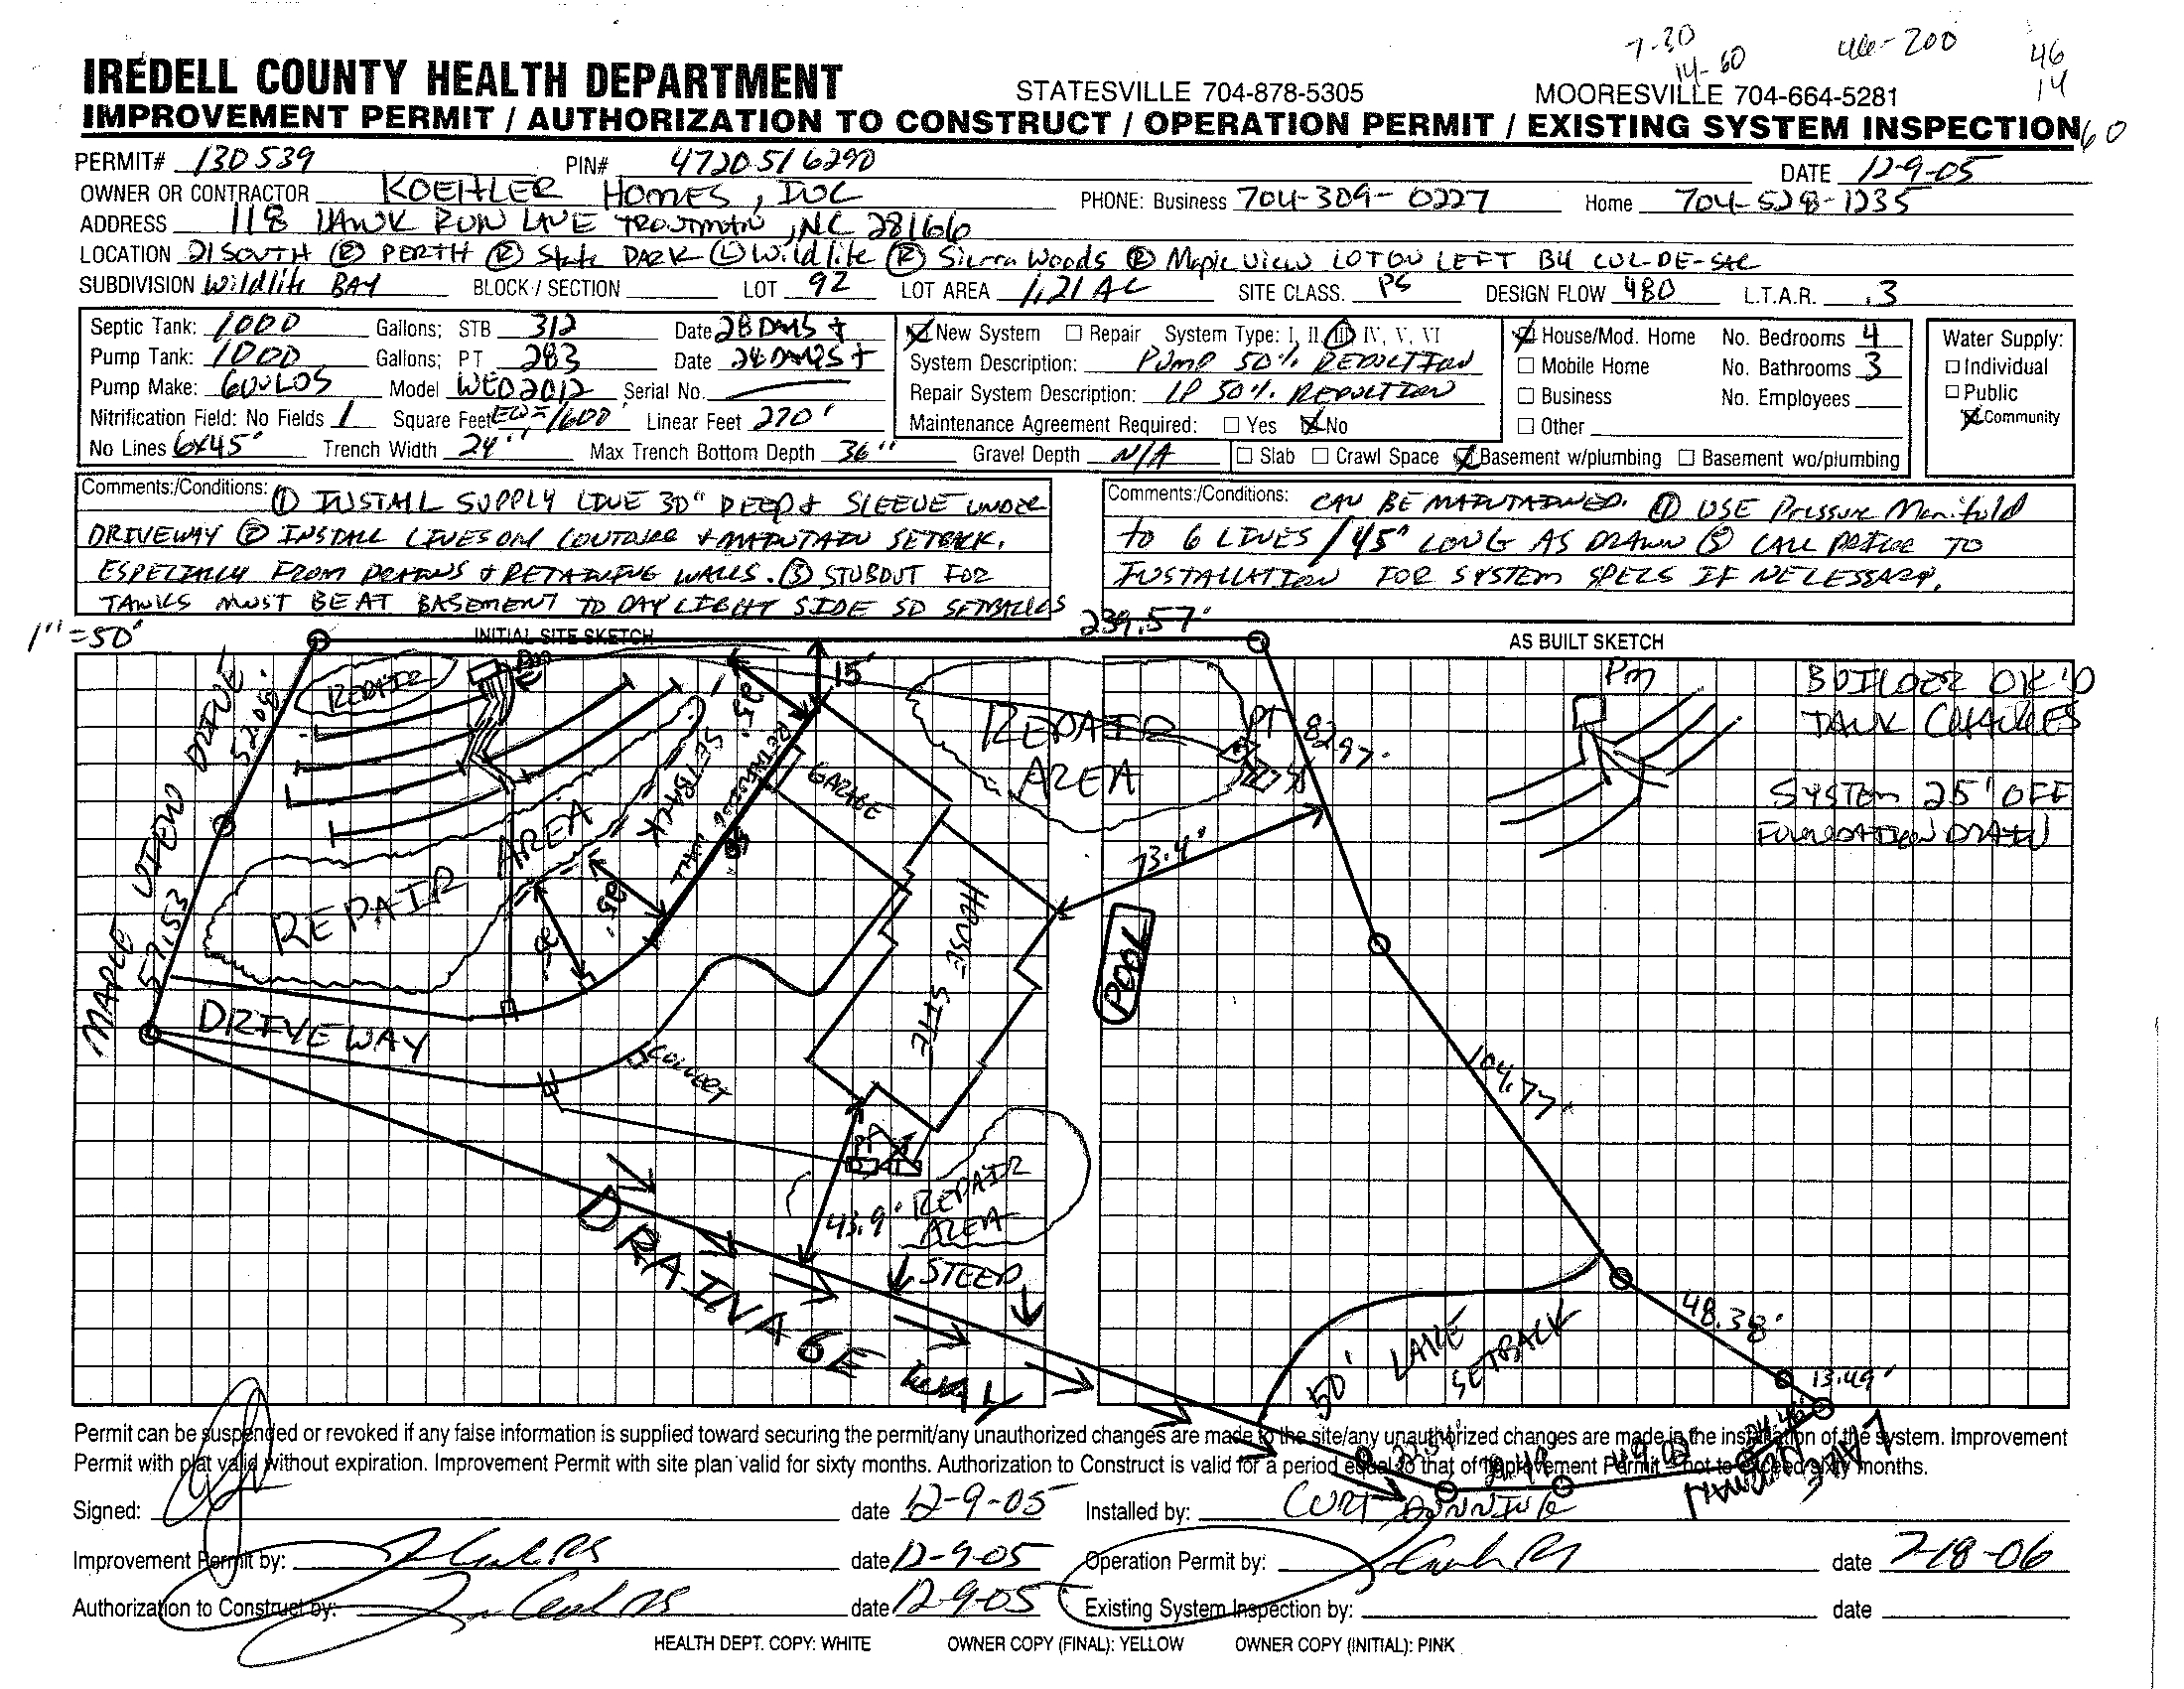 7-30
14-60
46-200
46
14
60
IREDELL COUNTY HEALTH DEPARTMENT STATESVILLE 704-878-5305 MOORESVILLE 704-664-5281
IMPROVEMENT PERMIT / AUTHORIZATION TO CONSTRUCT / OPERATION PERMIT / EXISTING SYSTEM INSPECTION
PERMIT# 130539 PIN# 4720516290 DATE 12-9-05
OWNER OR CONTRACTOR KOEHLER HOMES, INC PHONE: Business 704-309-0227 Home 704-528-1235
ADDRESS 118 HAWK RUN LANE TROUTMAN, NC 28166
LOCATION 21 SOUTH (R) PERTH (R) State PARK (L) Wildlife (R) Sierra Woods (R) Maple View LOT ON LEFT B4 CUL-DE-SAC
SUBDIVISION Wildlife BAY BLOCK / SECTION LOT 92 LOT AREA 1.21 AC SITE CLASS. PS DESIGN FLOW 480 L.T.A.R. .3
Septic Tank: 1000 Gallons; STB 312 Date 28 DAYS +
Pump Tank: 1000 Gallons; PT 283 Date 28 DAYS +
Pump Make: GOULDS Model WE02012 Serial No.
Nitrification Field: No Fields 1 Square Feet EQ= 1600' Linear Feet 270'
No Lines 6x45' Trench Width 24" Max Trench Bottom Depth 36" Gravel Depth N/A
New System Repair System Type: I, II, III, IV, V, VI
System Description: PUMP 50% REDUCTION
Repair System Description: LP 50% REDUCTION
Maintenance Agreement Required: Yes No
Slab Crawl Space Basement w/plumbing Basement wo/plumbing
House/Mod. Home No. Bedrooms 4
Mobile Home No. Bathrooms 3
Business No. Employees
Other
Water Supply:
Individual
Public
Community
Comments:/Conditions: ① INSTALL SUPPLY LINE 30" DEEP & SLEEVE UNDER
DRIVEWAY ② INSTALL LINES ON CONTOUR & MAINTAIN SETBACK,
ESPECIALLY FROM DRAINS & RETAINING WALLS. ③ STUBOUT FOR
TANKS MUST BE AT BASEMENT TO DAYLIGHT SIDE SO SETBACKS
Comments:/Conditions: CAN BE MAINTAINED. ④ USE Pressure Manifold
to 6 LINES / 45' LONG AS DRAWN ⑤ CALL PRIOR TO
INSTALLATION FOR SYSTEM SPECS IF NECESSARY.
1"=50'
INITIAL SITE SKETCH
239.57'
AS BUILT SKETCH
REPAIR
PM
15'
25'
SETBACK
RETAINING WALL
GARAGE
REPAIR
AREA
PT
82.97'
PM
BUILDER OK'D
TANK CHANGES
SYSTEM 25' OFF
FOUNDATION DRAIN
MAPLE VIEW DRIVE
52.08'
57.53
REPAIR AREA
25'
HOUSE SITE
73.4'
POOL
DRIVEWAY
CONVERT
104.77'
43.9'
REPAIR
AREA
STEEP
DRAINAGE WAY
50' LAKE
SETBACK
48.38'
13.49'
49.02
LAKE NORMAN
Permit can be suspended or revoked if any false information is supplied toward securing the permit/any unauthorized changes are made to the site/any unauthorized changes are made in the installation of the system. Improvement
Permit with plat valid without expiration. Improvement Permit with site plan valid for sixty months. Authorization to Construct is valid for a period equal to that of Improvement Permit - not to exceed sixty months.
Signed: date 12-9-05 Installed by: CURT
Improvement Permit by: date 12-9-05 Operation Permit by: date 7-18-06
Authorization to Construct by: date 12-9-05 Existing System Inspection by: date
HEALTH DEPT. COPY: WHITE OWNER COPY (FINAL): YELLOW OWNER COPY (INITIAL): PINK